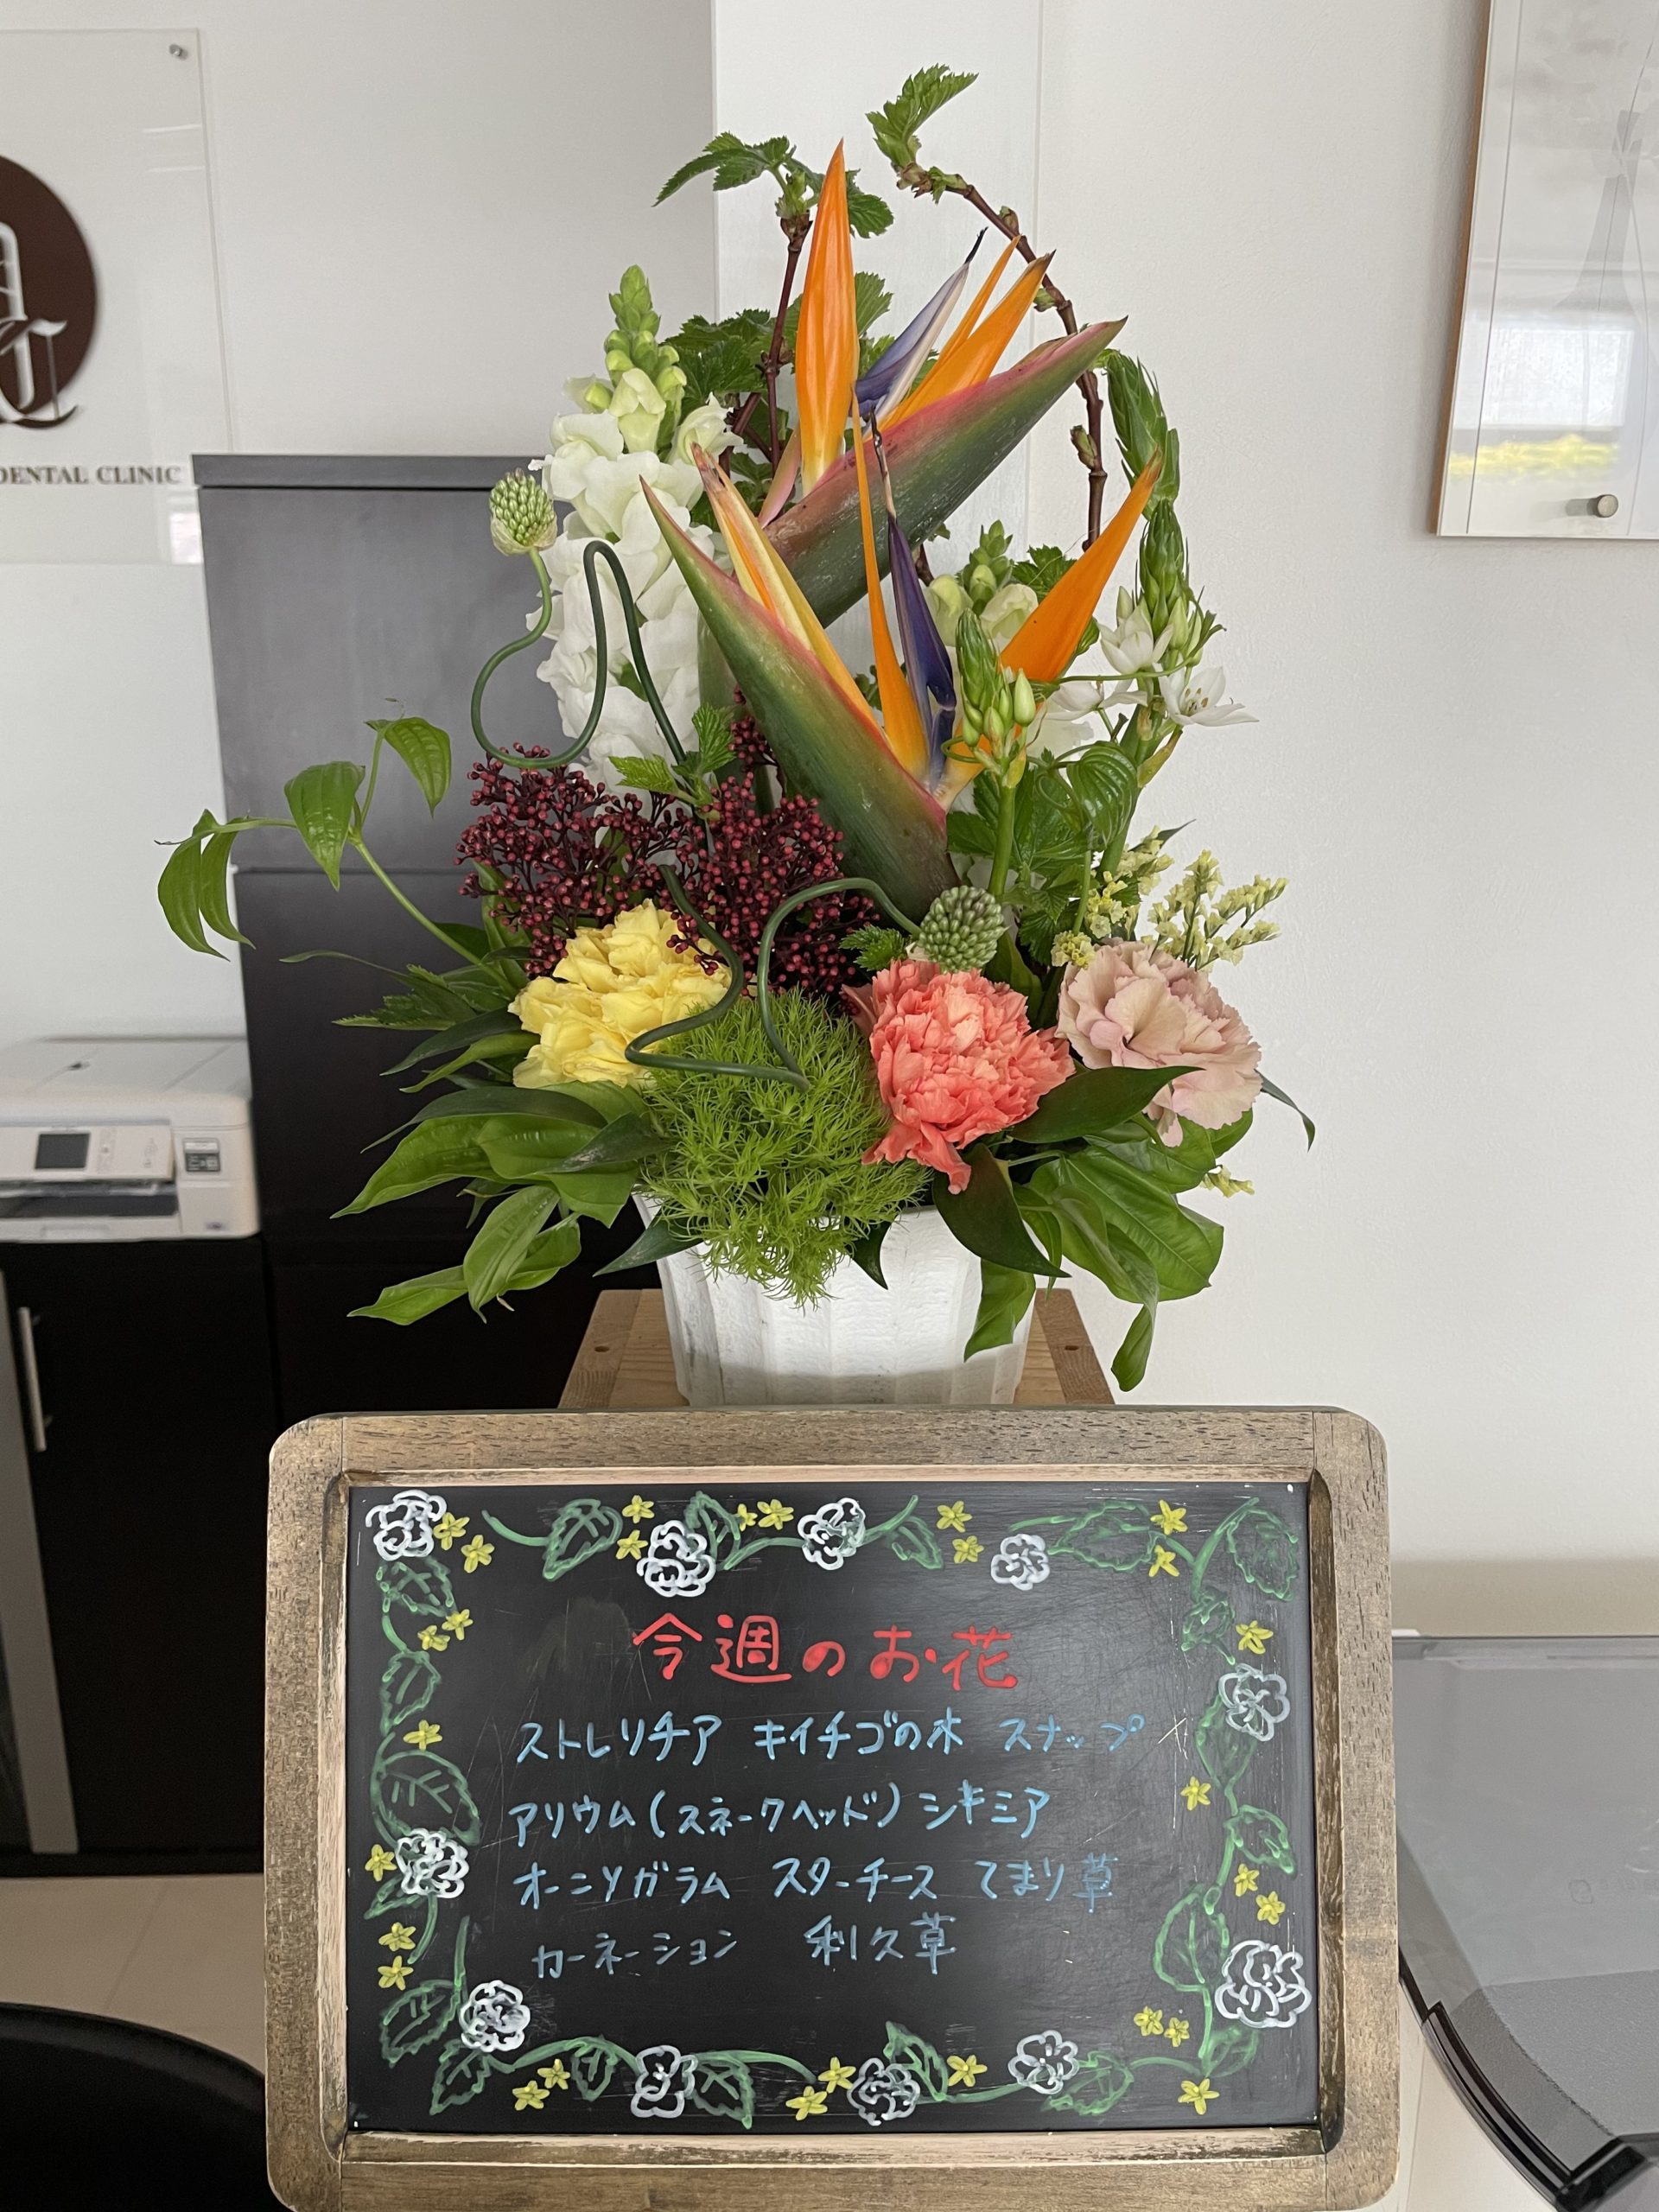 DENTAL CLINIC
今週のお花
ストレリチア キイチゴの木 スナップ
アリウム(スネークヘッド) シキミア
オーニソガラム スターチース てまり草
カーネーション 利久草